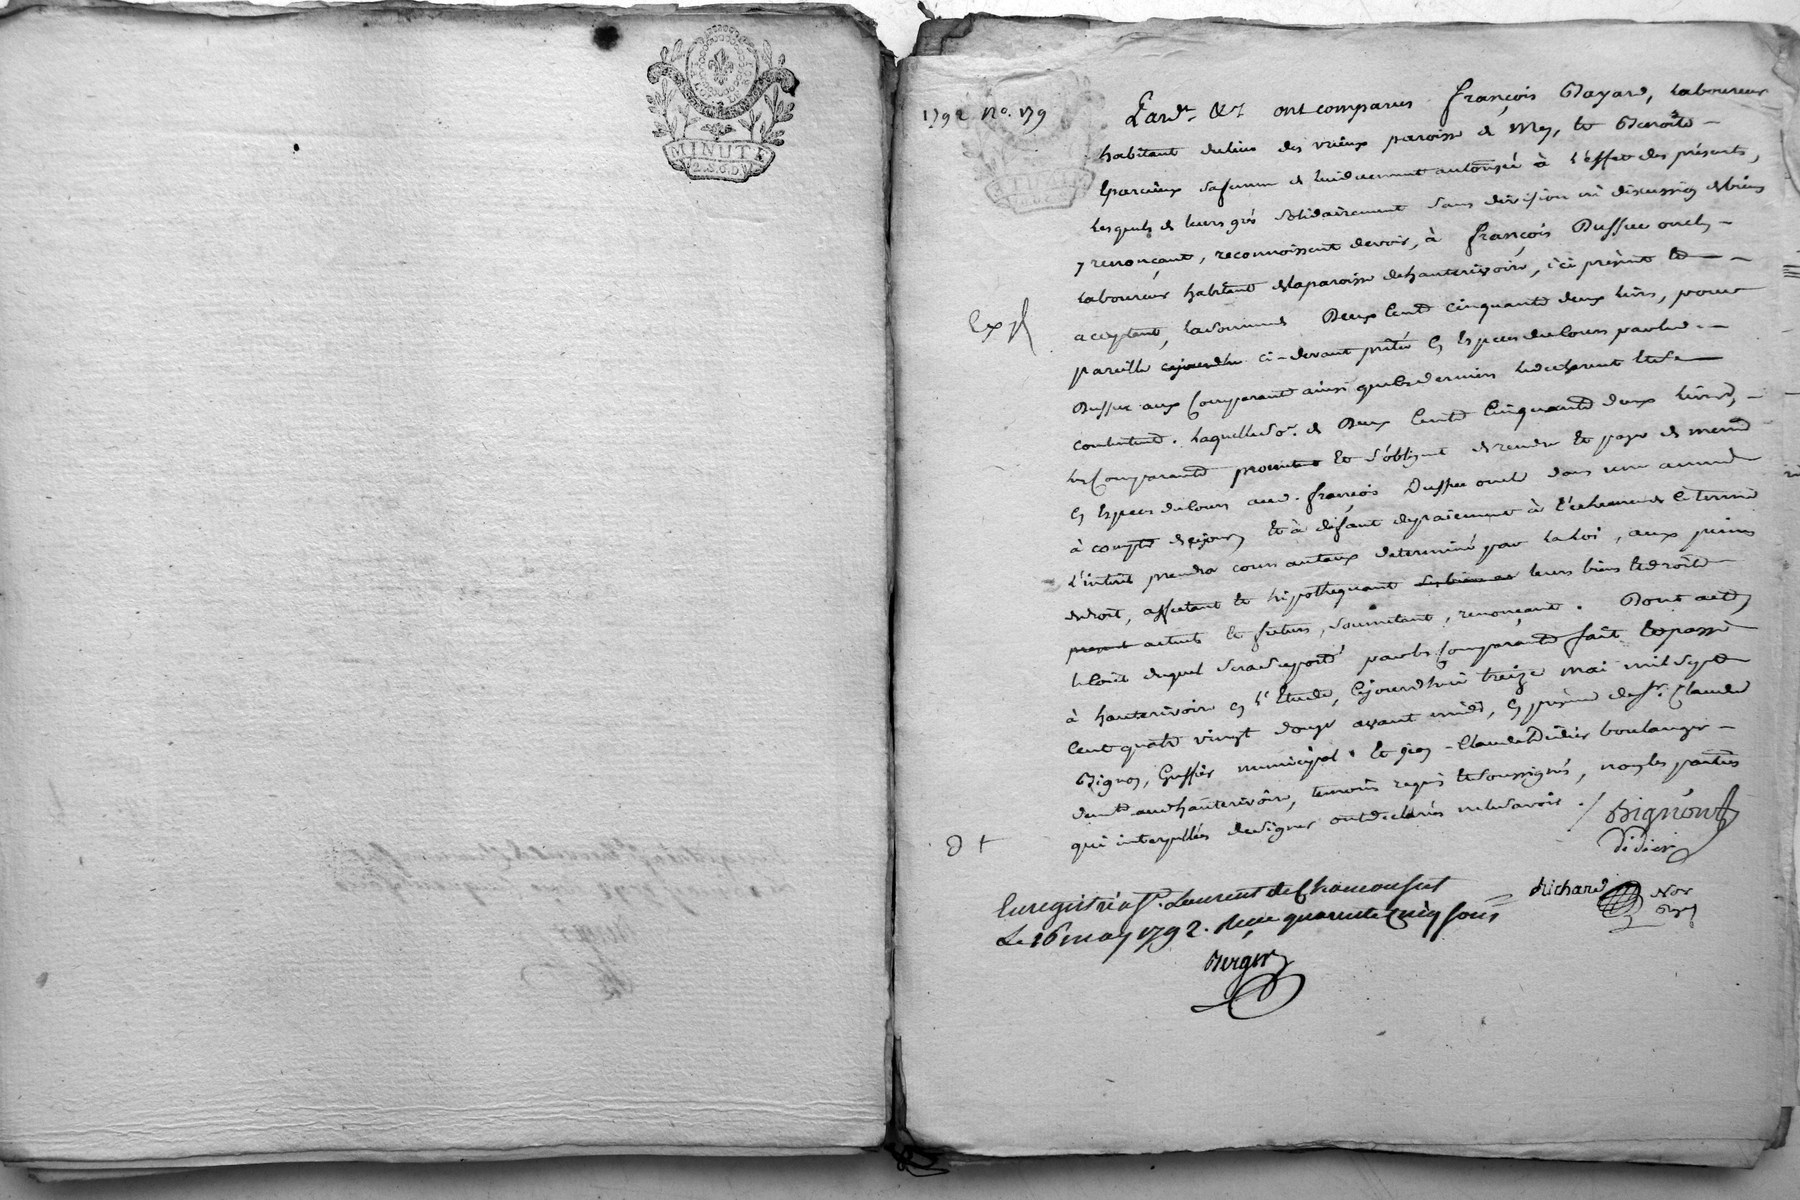 MINUTE
2.S.6.D.
1792 No. 179
Pard.t &c.a ont comparus françois Bayard, laboureur
habitant du lieu des vieux paroisse de Mey, et Benoîte
Sa femme de lui duement autorisée à l'effet des présents,
Lesquels de leurs grés solidairement sans division ni discussion de biens
y renonçant, reconnoissent devoir, à françois Dussuc oncle
Laboureur habitant de la paroisse de hauterivoire, ici présent et
Exp.
acceptant, la somme de Deux Cent cinquante deux livres, pour
pareille cejourdhui ci-devant prêtée en Espèces de Cours par led.
Dussuc aux Comparants ainsi que les derniers le declarent et s'en
contentent. Laquelle so.e de Deux Cents Cinquante deux Livres,
les Comparants promettent et s'obligent de rendre et payer de même
en Espèces de Cours aud. françois Dussuc oncle dans une année
à compter de ce jour, et à défaut de paiement à l'échéance de ce terme
L'intérêt prendra cours au taux déterminé par la loi, aux peines
de droit, affectant et hipothequant les biens leurs biens et droits
présent actuels et futurs, soumettant, renonçant. Dont acte
le Coût duquel sera supporté par les Comparants fait et passé
à hauterivoire en l'Etude, Cejourd'hui treize mai mil sept
Cent quatre vingt douze avant midi, en présence de Sr. Claude
Bignon, Greffier municipal et Jean-Claude Didier boulanger
dem.t aud. hauterivoire, temoins requis et soussignés, non les parties
qui interpellées de signer ont déclarés ne le savoir. /. Bignon
D +
Didier
Richard Not.
Enregistré à St. Laurent de Chamousset
Le 16 may 1792. Reçu quarente Cinq sous
Berger